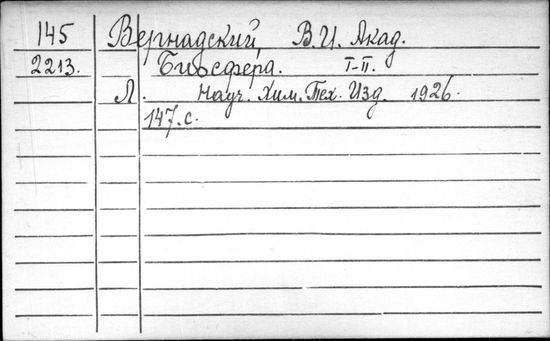 145 Вернадский, В.И. Акад.
2213. Биосфера. I-II.
Л. Науч. Хим. Тех. Изд. 1926.
147.с.